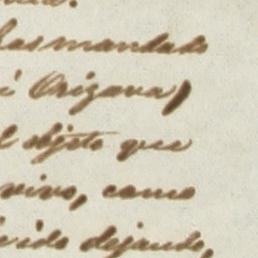 has mandado
Orizava,
objeto que
vivo, como
ido dejando,